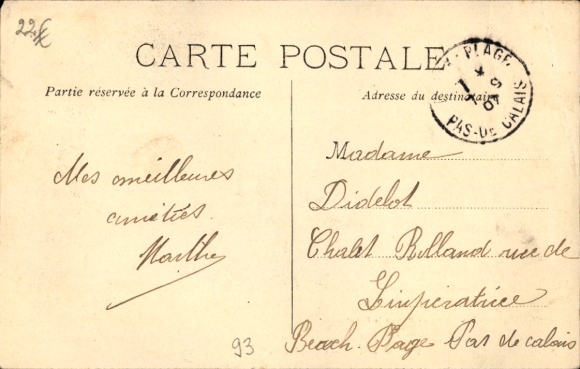 CARTE POSTALE
Partie réservée à la Correspondance
Adresse du destinataire
PLAGE
PAS-DE CALAIS
Mes meilleures
amitiés.
Marthe
Madame
Didelot
Chalet Rolland rue de
L'impératrice
Berck. Plage Pas de calais
93